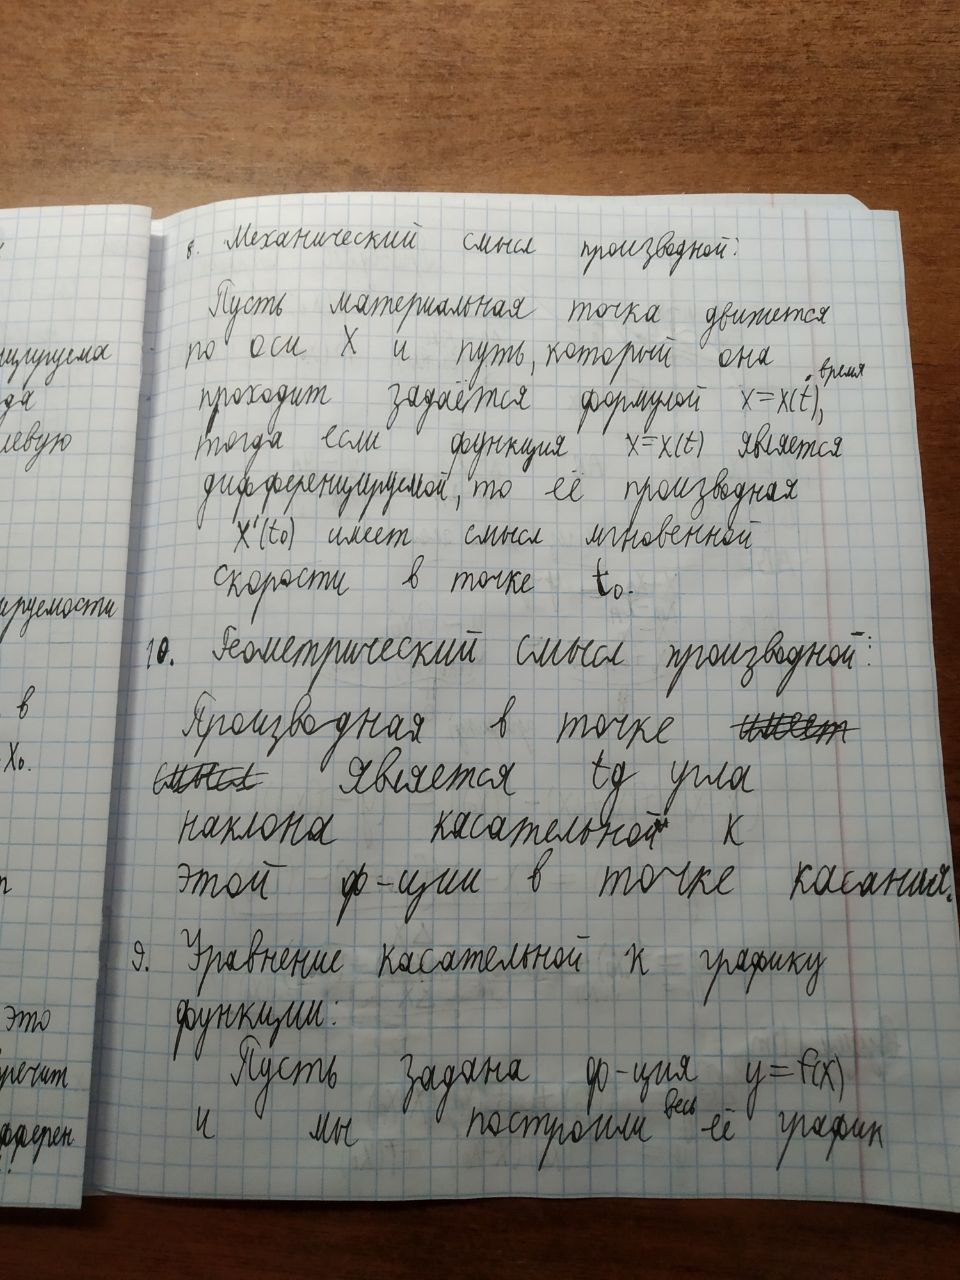 нцируема
да
левую
ируемости
в
x₀.
это
речит
фферен
8. Механический смысл производной:
Пусть материальная точка движется
по оси X и путь, который она
время
проходит задаётся формулой x=x(t),
тогда если функция x=x(t) является
дифференцируемой, то её производная
x'(t₀) имеет смысл мгновенной
скорости в точке t₀.
10. Геометрический смысл производной:
Производная в точке имеет
смысл является tg угла
наклона касательной к
этой ф-ции в точке касания.
9. Уравнение касательной к графику
функции:
Пусть задана ф-ция y=f(x)
весь
и мы построили её график